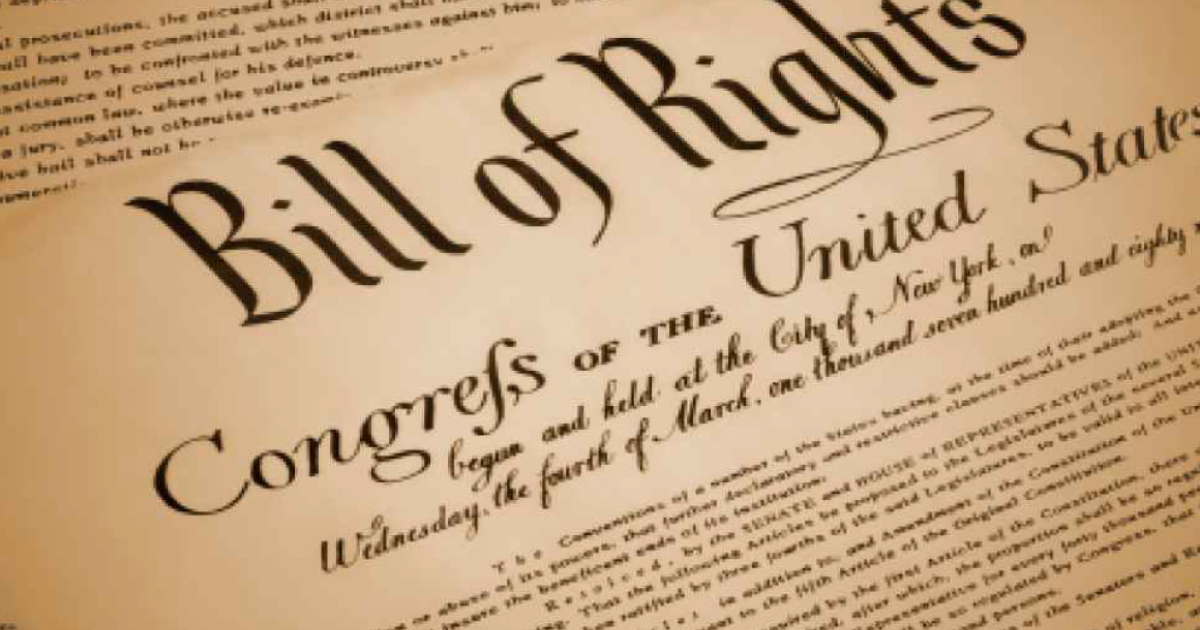 prosecutions, the accused
have been committed, which district shall
to be confronted with the witnesses against him; to
assistance of counsel for his defence.
common law, where the value in controversy
jury, shall be otherwise
bail shall not
Bill of Rights
Congreſs OF THE United States
begun and held at the City of New York, on
Wednesday, the fourth of March, one thousand seven hundred and eighty
The Conventions of a number of the States having, at the time of their adopting the
of its powers, that further declaratory and restrictive clauses should be added: And
the beneficent ends of its institution;
Resolved, by the SENATE and HOUSE of REPRESENTATIVES of the
That the following Articles be proposed to the Legislatures of the several
ratified by three fourths of the said Legislatures, to be valid to all
in addition to, and Amendment of the Constitution of the
to the fifth Article of the Original Constitution.
by the first Article of the Constitution, there
after which, the proportion shall be so
Representative for every forty thousand
be so regulated by Congress, that
persons.
of the Senators and
of religion,